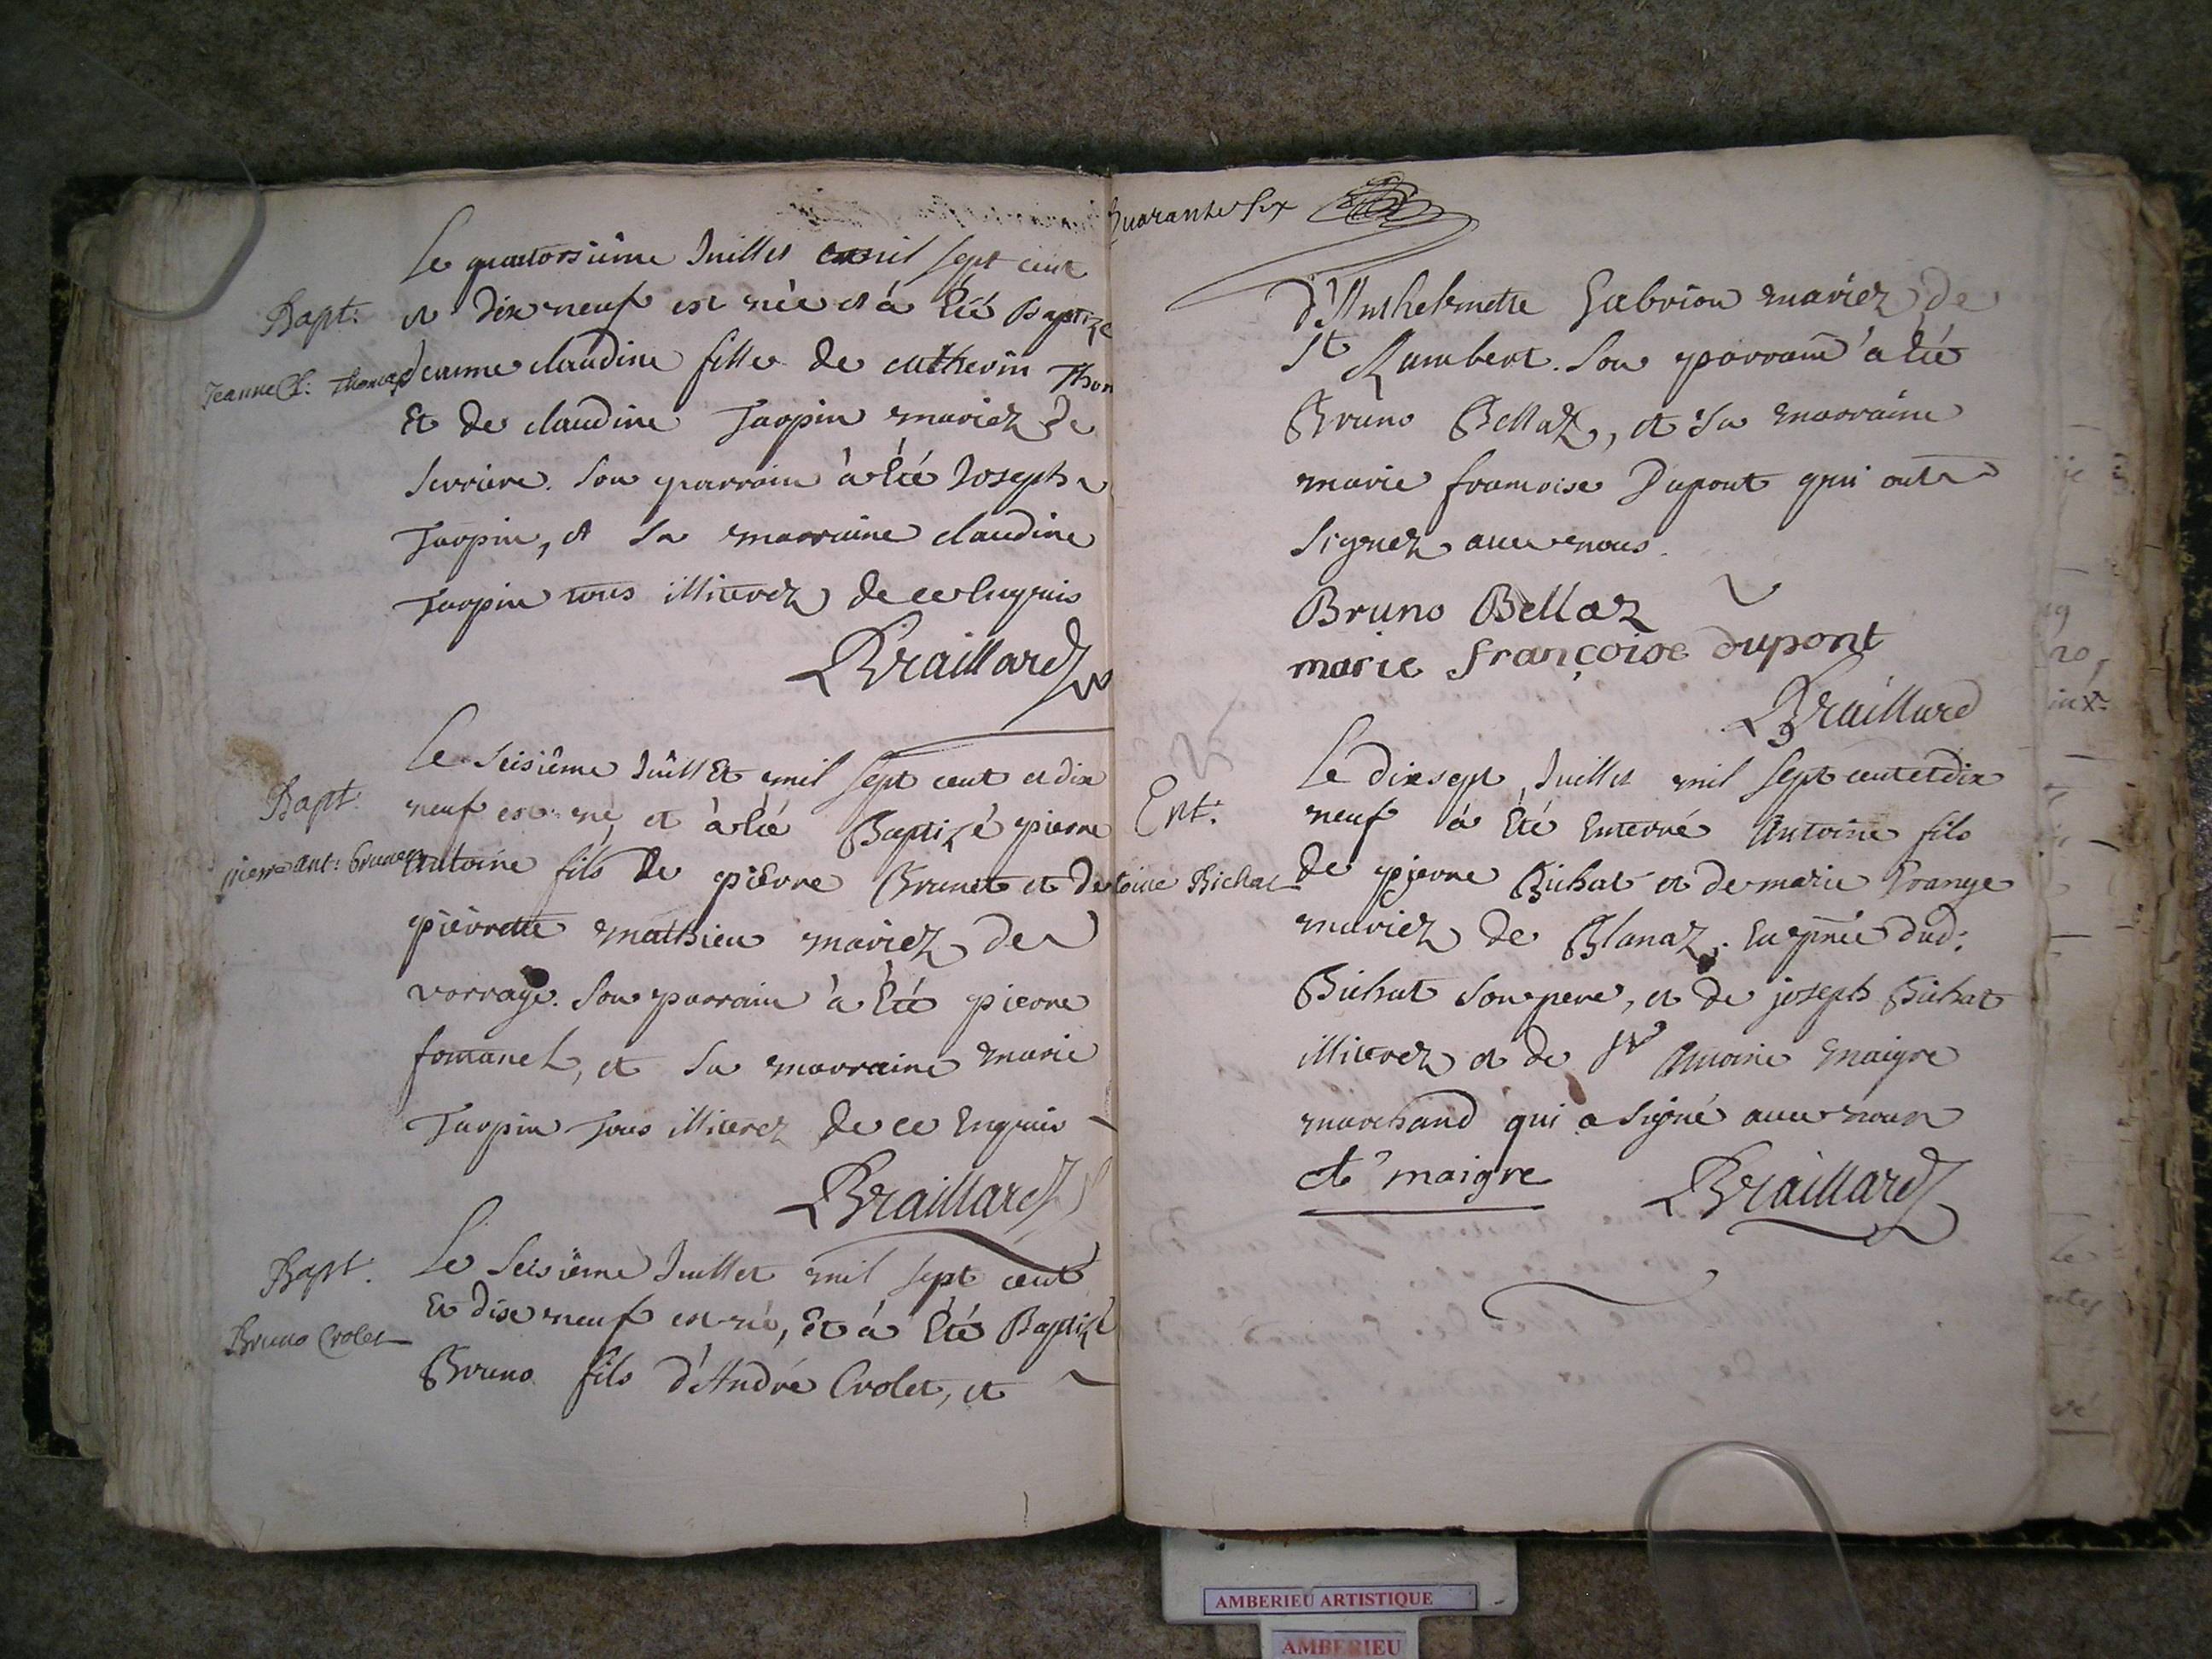 Le quatorsiême Juillet mil sept cent
Bapt:
et dix neuf est née et à été Baptize
Jeanne Cl: Thomas
Jeanne claudine fille de catherin Thom
Et de claudine Tarpin mariez de
Serriere. Son parrain à été Joseph
Tarpin, et sa marraine claudine
Tarpin tous illiterez de ce Enquis
Braillard
Le Seisiême Juillet mil sept cent et dix
Bapt:
neuf est né et à été Baptizé pierre
pierre ant: brunet
Antoine fils de pierre Brunet et de
pierrette mathieu mariez de
vorrage. Son parrain à été pierre
fontanel, et sa marraine marie
Tarpin tous illiterez de ce Enquis
Braillard
Bapt:
Le Seisiême Juillet mil sept cent
Bruno Crolet
Et dise neuf est né, Et à Eté Baptizé
Bruno fils d'André Crolet, et
Quarante six
d'Anthelmette Gabrion mariez de
St Rambert. Son parrain à été
Bruno Bellaz, et sa marraine
marie francoise Dupont qui ont
signez avec nous.
Bruno Bellaz
marie françoise dupont
Braillard
Le dixsept Juillet mil sept cent et dix
Ent:
neuf à Eté Enterré Antoine fils
toine Bichat
de pierre Bichat et de marie Orange
mariez de Blanaz. En pñce dud:
Bichat son pere, et de joseph Bichat
illiterez et de Sr Antoine maigre
marchand qui a signé avec nous
At maigre
Braillard
AMBERIEU ARTISTIQUE
AMBERIEU